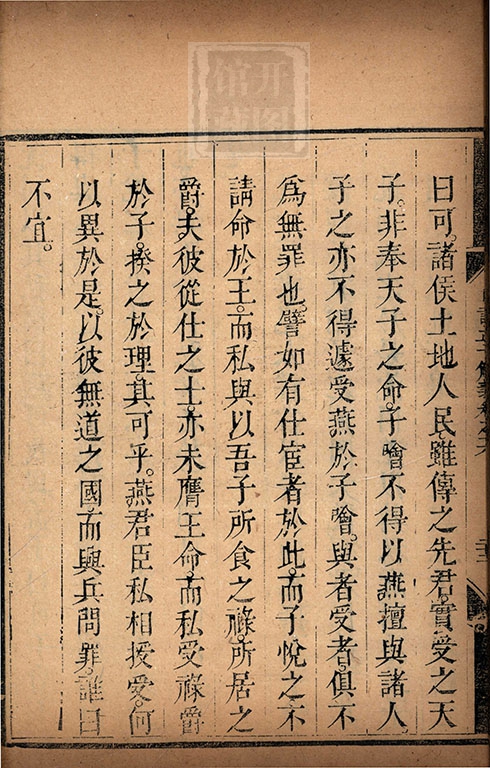 曰可。諸侯土地人民。雖傳之先君。實受之天
子。非奉天子之命。子噲不得以燕擅與諸人。
子之亦不得遽受燕於子噲。與者受者。俱不
爲無罪也。譬如有仕宦者於此。而子悅之不
請命於王。而私與以吾子所食之祿。所居之
爵。夫彼從仕之士。亦未膺王命。而私受祿爵
於子。揆之於理。其可乎。燕君臣私相授受。何
以異於是。以彼無道之國。而興兵問罪。誰曰
不宜。
開圖
館藏